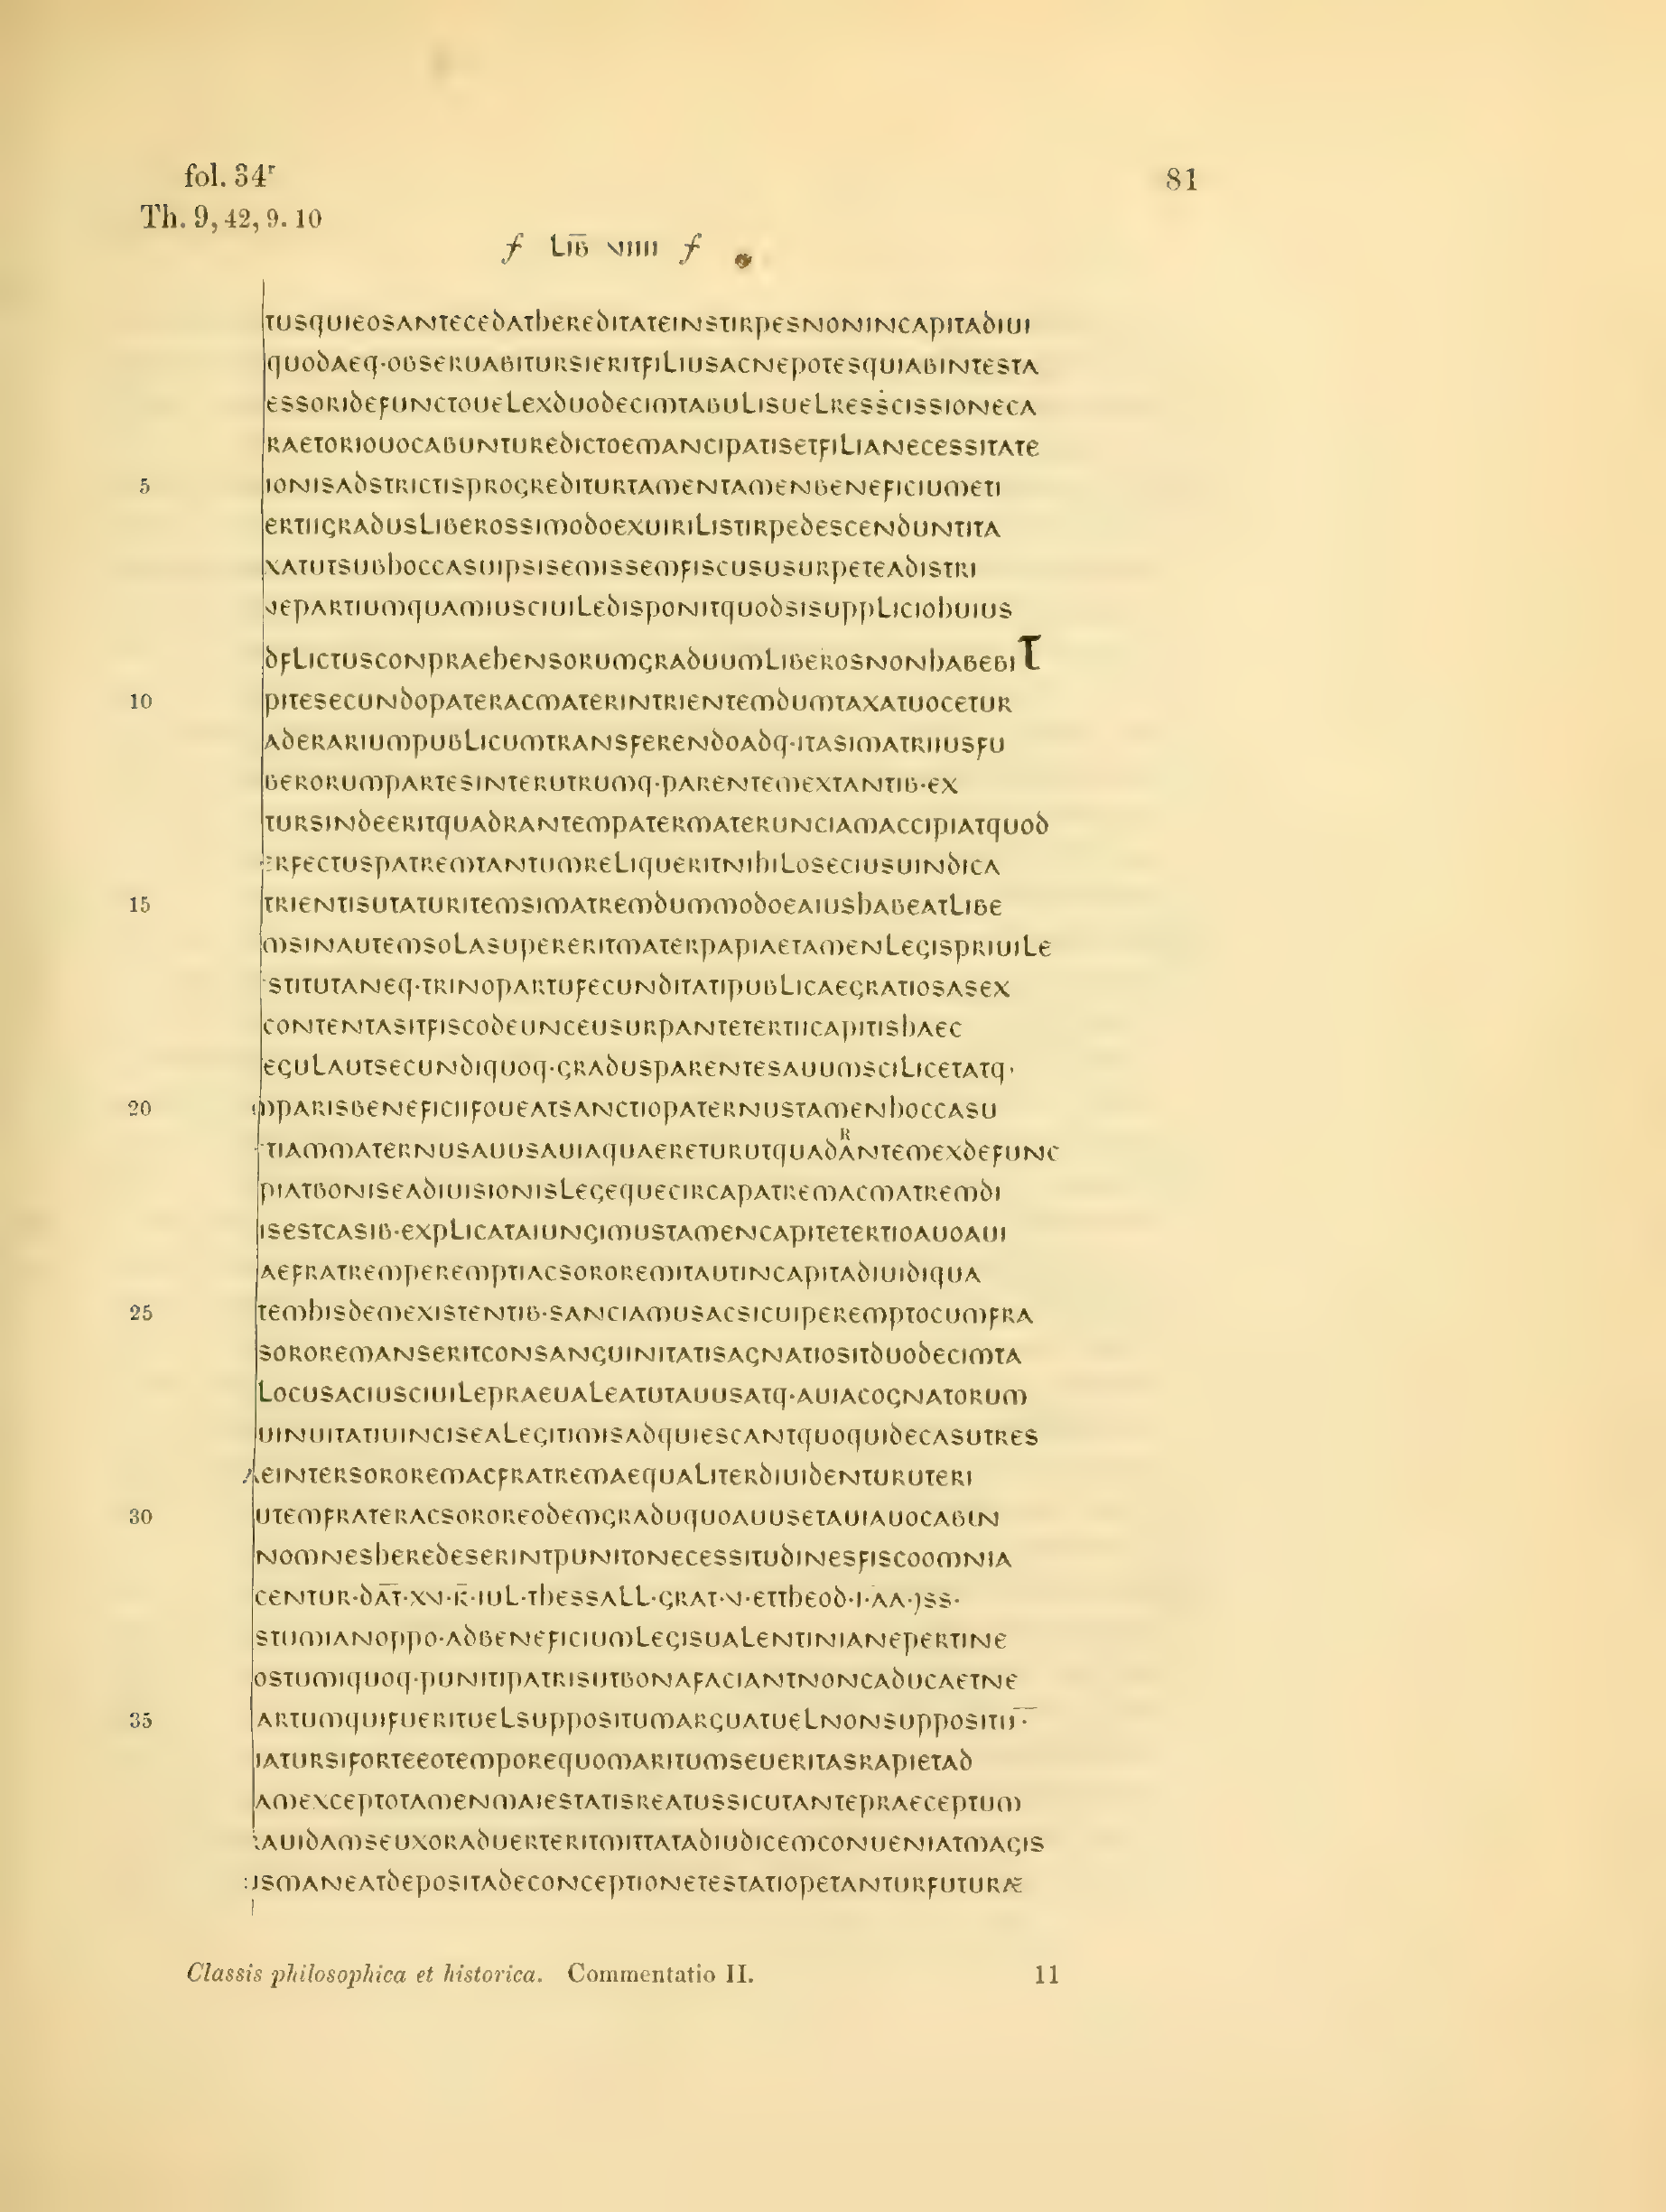 fol. 34r
81
Th. 9, 42, 9. 10
f LIB̅ VIIII f
TUSQUIEOSANTECEDATHEREDITATEINSTIRPESNONINCAPITADIUI
QUODAEQ·OBSERUABITURSIERITFILIUSACNEPOTESQUIABINTESTA
ESSORIDEFUNCTOUELEXDUODECIMTABULISUELRESṠCISSIONECA
RAETORIOUOCABUNTUREDICTOEMANCIPATISETFILIANECESSITATE
5 IONISADSTRICTISPROGREDITURTAMENTAMENBENEFICIUMETI
ERTIIGRADUSLIBEROSSIMODOEXUIRILISTIRPEDESCENDUNTITA
XATUTSUBHOCCASUIPSISEMISSEMFISCUSUSURPETEADISTRI
NEPARTIUMQUAMIUSCIUILEDISPONITQUODSISUPPLICIOHUIUS
DFLICTUSCONPRAEHENSORUMGRADUUMLIBEROSNONHABEBIT
10 PITESECUNDOPATERACMATERINTRIENTEMDUMTAXATUOCETUR
ADERARIUMPUBLICUMTRANSFERENDOADQ·ITASIMATRIIUSFU
BERORUMPARTESINTERUTRUMQ·PARENTEMEXTANTIB·EX
TURSINDEERITQUADRANTEMPATERMATERUNCIAMACCIPIATQUOD
ERFECTUSPATREMTANTUMRELIQUERITNIHILOSECIUSUINDICA
15 TRIENTISUTATURITEMSIMATREMDUMMODOEAIUSHABEATLIBE
MSINAUTEMSOLASUPERERITMATERPAPIAETAMENLEGISPRIUILE
STITUTANEQ·TRINOPARTUFECUNDITATIPUBLICAEGRATIOSASEX
CONTENTASITFISCODEUNCEUSURPANTETERTIICAPITISHAEC
EGULAUTSECUNDIQUOQ·GRADUSPARENTESAUUMSCILICETATQ·
20 MPARISBENEFICIIFOUEATSANCTIOPATERNUSTAMENHOCCASU
TIAMMATERNUSAUUSAUIAQUAERETURUTQUADᴿANTEMEXDEFUNC
PIATBONISEADIUISIONISLEGEQUECIRCAPATREMACMATREMDI
ISESTCASIB·EXPLICATAIUNGIMUSTAMENCAPITETERTIOAUOAUI
AEFRATREMPEREMPTIACSOROREMITAUTINCAPITADIUIDIQUA
25 TEMHISDEMEXISTENTIB·SANCIAMUSACSICUIPEREMPTOCUMFRA
SOROREMANSERITCONSANGUINITATISAGNATIOSITDUODECIMTA
LOCUSACIUSCIUILEPRAEUALEATUTAUUSATQ·AUIACOGNATORUM
UINUITATIUINCISEALEGITIMISADQUIESCANTQUOQUIDECASUTRES
AEINTERSOROREMACFRATREMAEQUALITERDIUIDENTURUTERI
30 UTEMFRATERACSOROREODEMGRADUQUOAUUSETAUIAUOCABUN
NOMNESHEREDESERINTPUNITONECESSITUDINESFISCOOMNIA
CENTUR·DA̅T̅·XV·K̅·IUL·THESSALL·GRAT·V·ETTHEOD·I·AA·CSS·
STUMIANOPPO·ADBENEFICIUMLEGISUALENTINIANEPERTINE
OSTUMIQUOQ·PUNITIPATRISUTBONAFACIANTNONCADUCAETNE
35 ARTUMQUIFUERITUELSUPPOSITUMARGUATUELNONSUPPOSITU̅·
IATURSIFORTEEOTEMPOREQUOMARITUMSEUERITASRAPIETAD
AMEXCEPTOTAMENMAIESTATISREATUSSICUTANTEPRAECEPTUM
RAUIDAMSEUXORADUERTERITMITTATADIUDICEMCONUENIATMAGIS
USMANEATDEPOSITADECONCEPTIONETESTATIOPETANTURFUTURÆ
Classis philosophica et historica. Commentatio II. 11